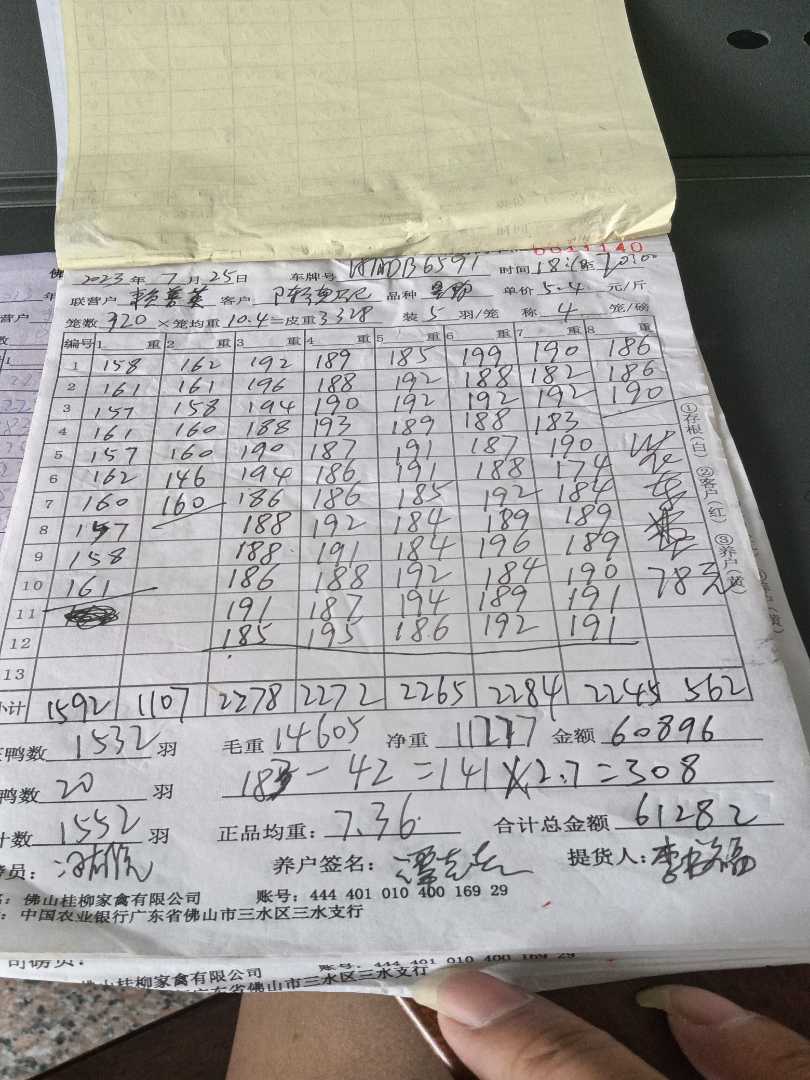 0011140
2023年7月25日 车牌号 时间18:10至20:00
联营户 客户 品种 单价5.4元/斤
笼数320×笼均重10.4=皮重3328 装5羽/笼 称4笼/磅
编号 1 重 2 重 3 重 4 重 5 重 6 重 7 重 8 重
1 158 162 192 189 185 199 190 186
2 161 161 196 188 192 188 182 186
3 157 158 194 190 192 192 192 190
4 161 160 188 193 189 188 183
5 157 160 190 187 191 187 190
6 162 146 194 186 191 188 174
7 160 160 186 186 185 192 184
8 157 188 192 184 189 189
9 158 188 191 184 196 189
10 161 186 188 192 184 190 78元
11 191 187 194 189 191
12 185 195 186 192 191
13
小计 1592 1107 2278 2272 2265 2284 2245 562
鸭数 1532 羽 毛重14605 净重11277 金额60896
鸭数 20 羽 183-42=141×2.7=308
计数 1552 羽 正品均重:7.36 合计总金额61282
员: 养户签名: 提货人:
①存根(白) ②客户(红) ③养户(黄)
: 佛山桂柳家禽有限公司 账号: 444 401 010 400 169 29
: 中国农业银行广东省佛山市三水区三水支行
司磅员:
佛山桂柳家禽有限公司 账号: 444 401 010 400 169 29
广东省佛山市三水区三水支行